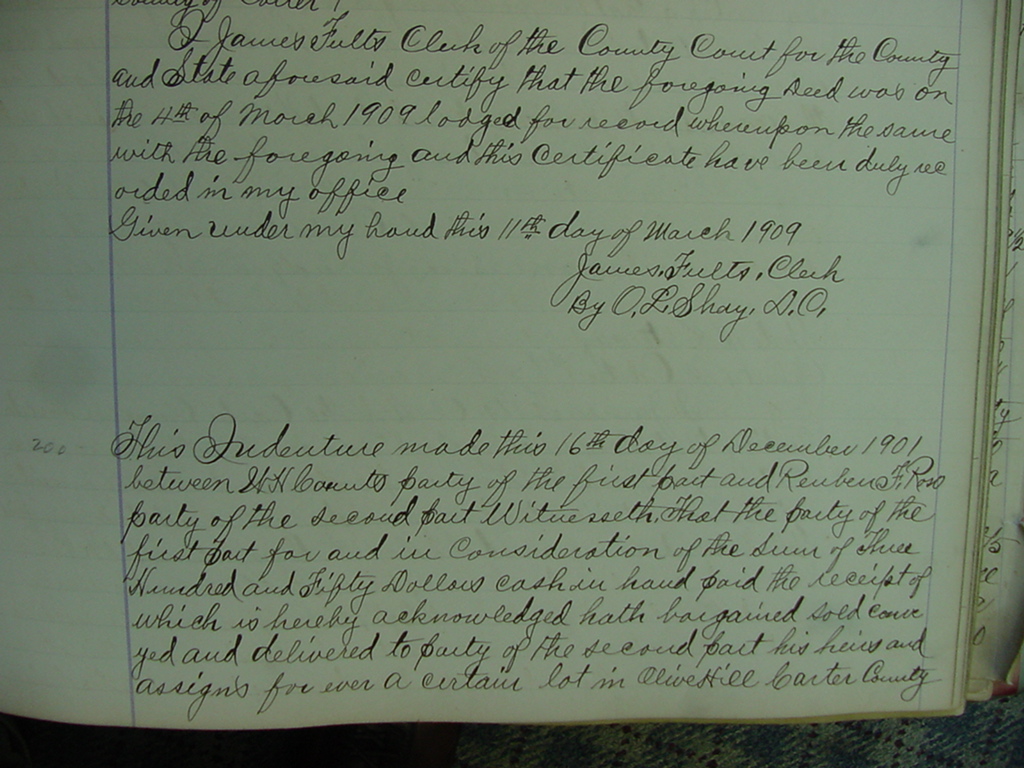 County of Carter
I James Fults Clerk of the County Court for the County
and State aforesaid certify that the foregoing Deed was on
the 4th of March 1909 lodged for record whereupon the same
with the foregoing and this Certificate have been duly rec
orded in my office
Given under my hand this 11th day of March 1909
James Fults, Clerk
By O. L. Shay, D.C.
200
This Indenture made this 16th day of December 1901
between W H Counts party of the first part and Reuben F. Rose
party of the second part Witnesseth, That the party of the
first part for and in Consideration of the Sum of Three
Hundred and Fifty Dollars cash in hand paid the receipt of
which is hereby acknowledged hath bargained sold conve
yed and delivered to party of the second part his heirs and
assigns for ever A certain lot in Olive Hill Carter County